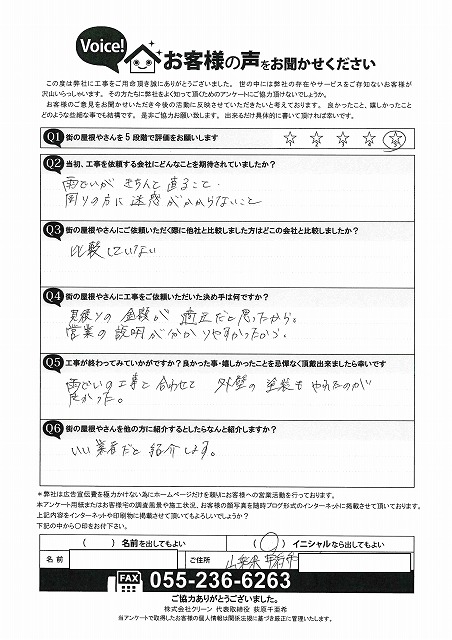 Voice!
お客様の声をお聞かせください
この度は弊社に工事をご用命頂き誠にありがとうございました。 世の中には弊社の存在やサービスをご存知ないお客様が
沢山いらっしゃいます。 その方たちに弊社をよく知って頂くためのアンケートにご協力頂けないでしょうか。
お客様のご意見をお聞かせいただき今後の活動に反映させていただきたいと考えております。 良かったこと、嬉しかったこと
どのような些細な事でも結構です。 是非ご協力お願い致します。 出来るだけ具体的に書いて頂ければ幸いです。
Q1 街の屋根やさんを5段階で評価をお願いします ☆ ☆ ☆ ☆ ☆
Q2 当初、工事を依頼する会社にどんなことを期待されていましたか?
雨どいが きちんと 直ること
周りの方に 迷惑 がかからないこと
Q3 街の屋根やさんにご依頼いただく際に他社と比較しました方はどこの会社と比較しましたか?
比較していない
Q4 街の屋根やさんに工事をご依頼いただいた決め手は何ですか?
見積りの 金額が 適正だと思ったから。
営業の 説明が分かりやすかったから。
Q5 工事が終わってみていかがですか?良かった事・嬉しかったことを忌憚なく頂戴出来ましたら幸いです
雨どいの工事と合わせて 外壁の 塗装も やれたのが
良かった。
Q6 街の屋根やさんを他の方に紹介するとしたらなんと紹介しますか?
いい業者だと 紹介します。
*弊社は広告宣伝費を極力かけない為にホームページだけを頼りにお客様への営業活動を行っております。
本アンケート用紙またはお客様宅の調査風景や施工状況、お客様の顔写真を随時ブログ形式のインターネットに掲載させて頂いております。
上記内容をインターネットや印刷物に掲載させて頂いてもよろしいでしょうか?
下記の中から〇印をお付下さい。
( ) 名前を出してもよい ( 〇 ) イニシャルなら出してもよい
名 前 ご住所 山梨県
FAX 055-236-6263
ご協力ありがとうございました。
株式会社クリーン 代表取締役 荻原千亜希
当アンケートで取得したお客様の個人情報は関係法規に基づき厳正に管理いたします。